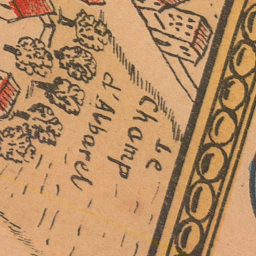 Le
Champ
d'Albarel